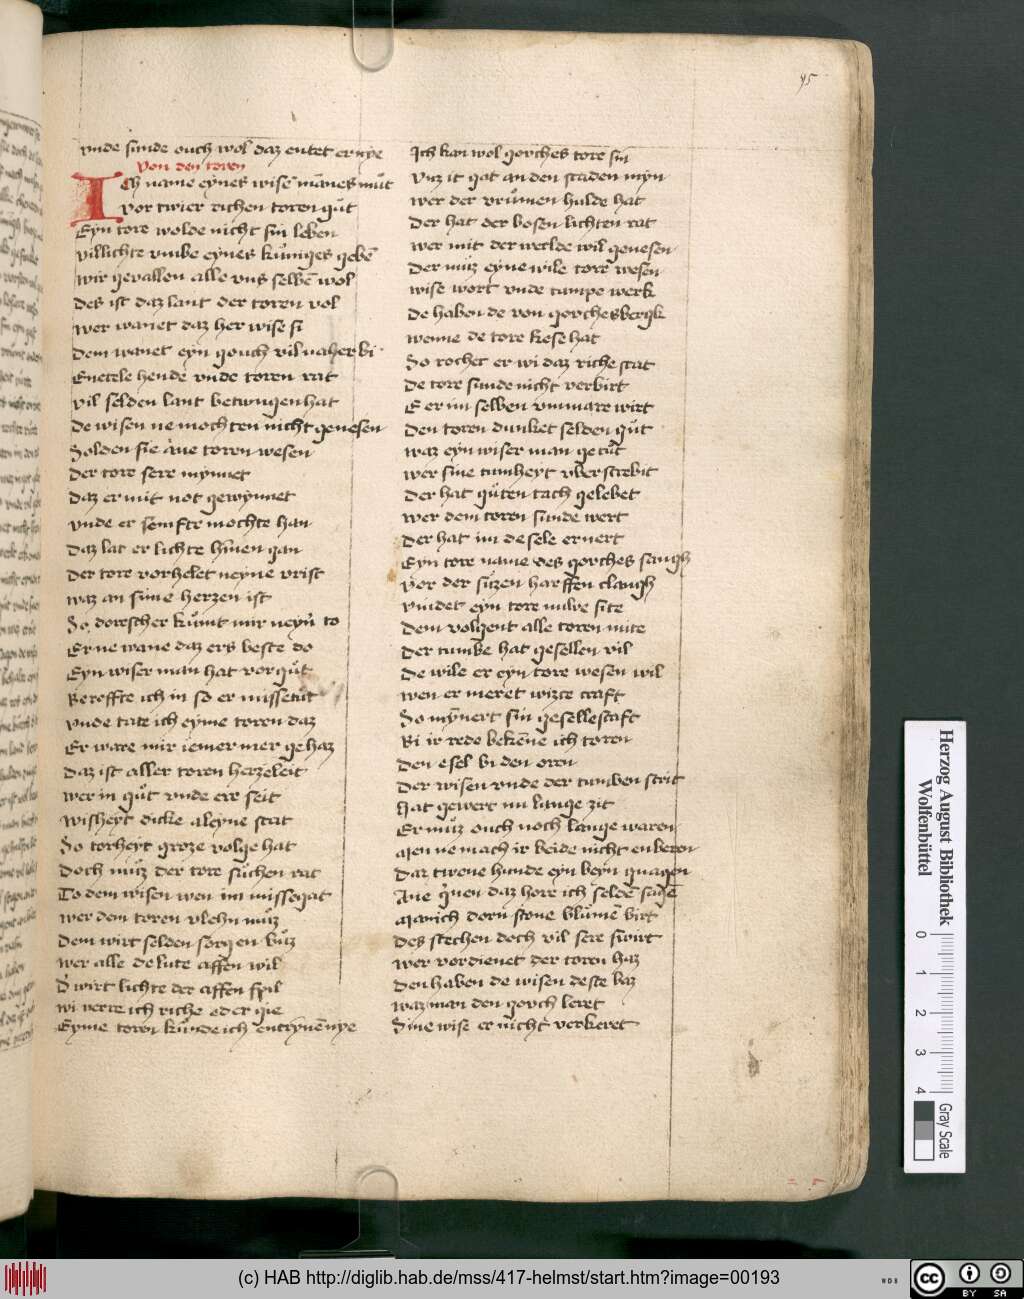 95
vnde sunde ouch wol daz entet er nye
Von den toren
Ich name eynes wisē mānes můt
vor twier richen toren gůt
Eyn tore wolde nicht sin leben
villichte vmbe eynes kůniges gebē
wir gevallen alle vns selbē wol
Des ist daz lant der toren vol
wer wanet daz her wise si
Dem wanet eyn gouch vil naher bi
Enetele hende vnde toren rat
vil selden lant betwngen hat
De wisen ne mochten nicht genesen
Solden sie ane toren wesen
Der tore sere mynnet
Daz er mit not gewynnet
vnde er semfte mochte han
Daz lat er lichte hinen gan
Der tore vorhelet neyne vrist
waz an sime herzen ist
So dorescher kůmt mir neyn to
Er ne wane daz ers beste do
Eyn wiser man hat vor gůt
Reroffte ich in so er missetůt
vnde tate ich eyme toren daz
Er ware mir iemer mer gehaz
Daz ist aller toren herzeleit
wer in gůt vnde ere seit
wisheyt dicke aleyne stat
So torheyt groze volge hat
Doch můz der tore suchen rat
To dem wisen wen im missegat
wer dem toren vlehn můz
Dem wirt selden sorgen bůz
wer alle de lute affen wil
D wirt lichte der affen spil
wi verre ich riche oder gie
Eyme toren kůnde ich entrynē nye
Ich kan wol gorches tore sin
vnz it gat an den staden myn
wer der vrůmen hulde hat
Der hat der bosen lichten rat
wer mit der werlde wil genesen
Der můz eyne wile tore wesen
wise wort vnde tumpe werk
De haben de von gorchesbergk
wenne de tore kese hat
So rochet er wi daz riche stat
De tore sunde nicht verbirt
E er im selben vnmare wirt
Den toren dunket selden gůt
waz eyn wiser man getůt
wer sine tumheyt vberstrebit
Der hat gůten tach gelebet
wer dem toren sunde wert
Der hat im de sele ernert
Eyn tore name des gorches sangh
vor der sůzen harffen clangh
vindet eyn tore nuwe site
Dem volgent alle toren mite
Der tumbe hat gesellen vil
De wile er eyn tore wesen wil
wen er meret wizce craft
So mynert sin gesellescaft
Bi ir rede bekēne ich toren
Den esel bi den oren
Der wisen vnde der tumben strit
Hat gewert nu lange zit
Er můz ouch noch lange waren
Men ne mach ir beide nicht enberen
Daz twene hunde eyn beyn gnagen
Ane grinen daz hore ich seldē sagē
Manich dorn scone blůmē birt
Des stechen doch vil sere swirt
wer vordienet der toren haz
Den haben de wisen deste baz
waz man den gorch leret
Sine wise er nicht verkeret
Herzog August Bibliothek
Wolfenbüttel
0 1 2 3 4
Gray Scale
(c) HAB http://diglib.hab.de/mss/417-helmst/start.htm?image=00193
WDB
CC BY SA